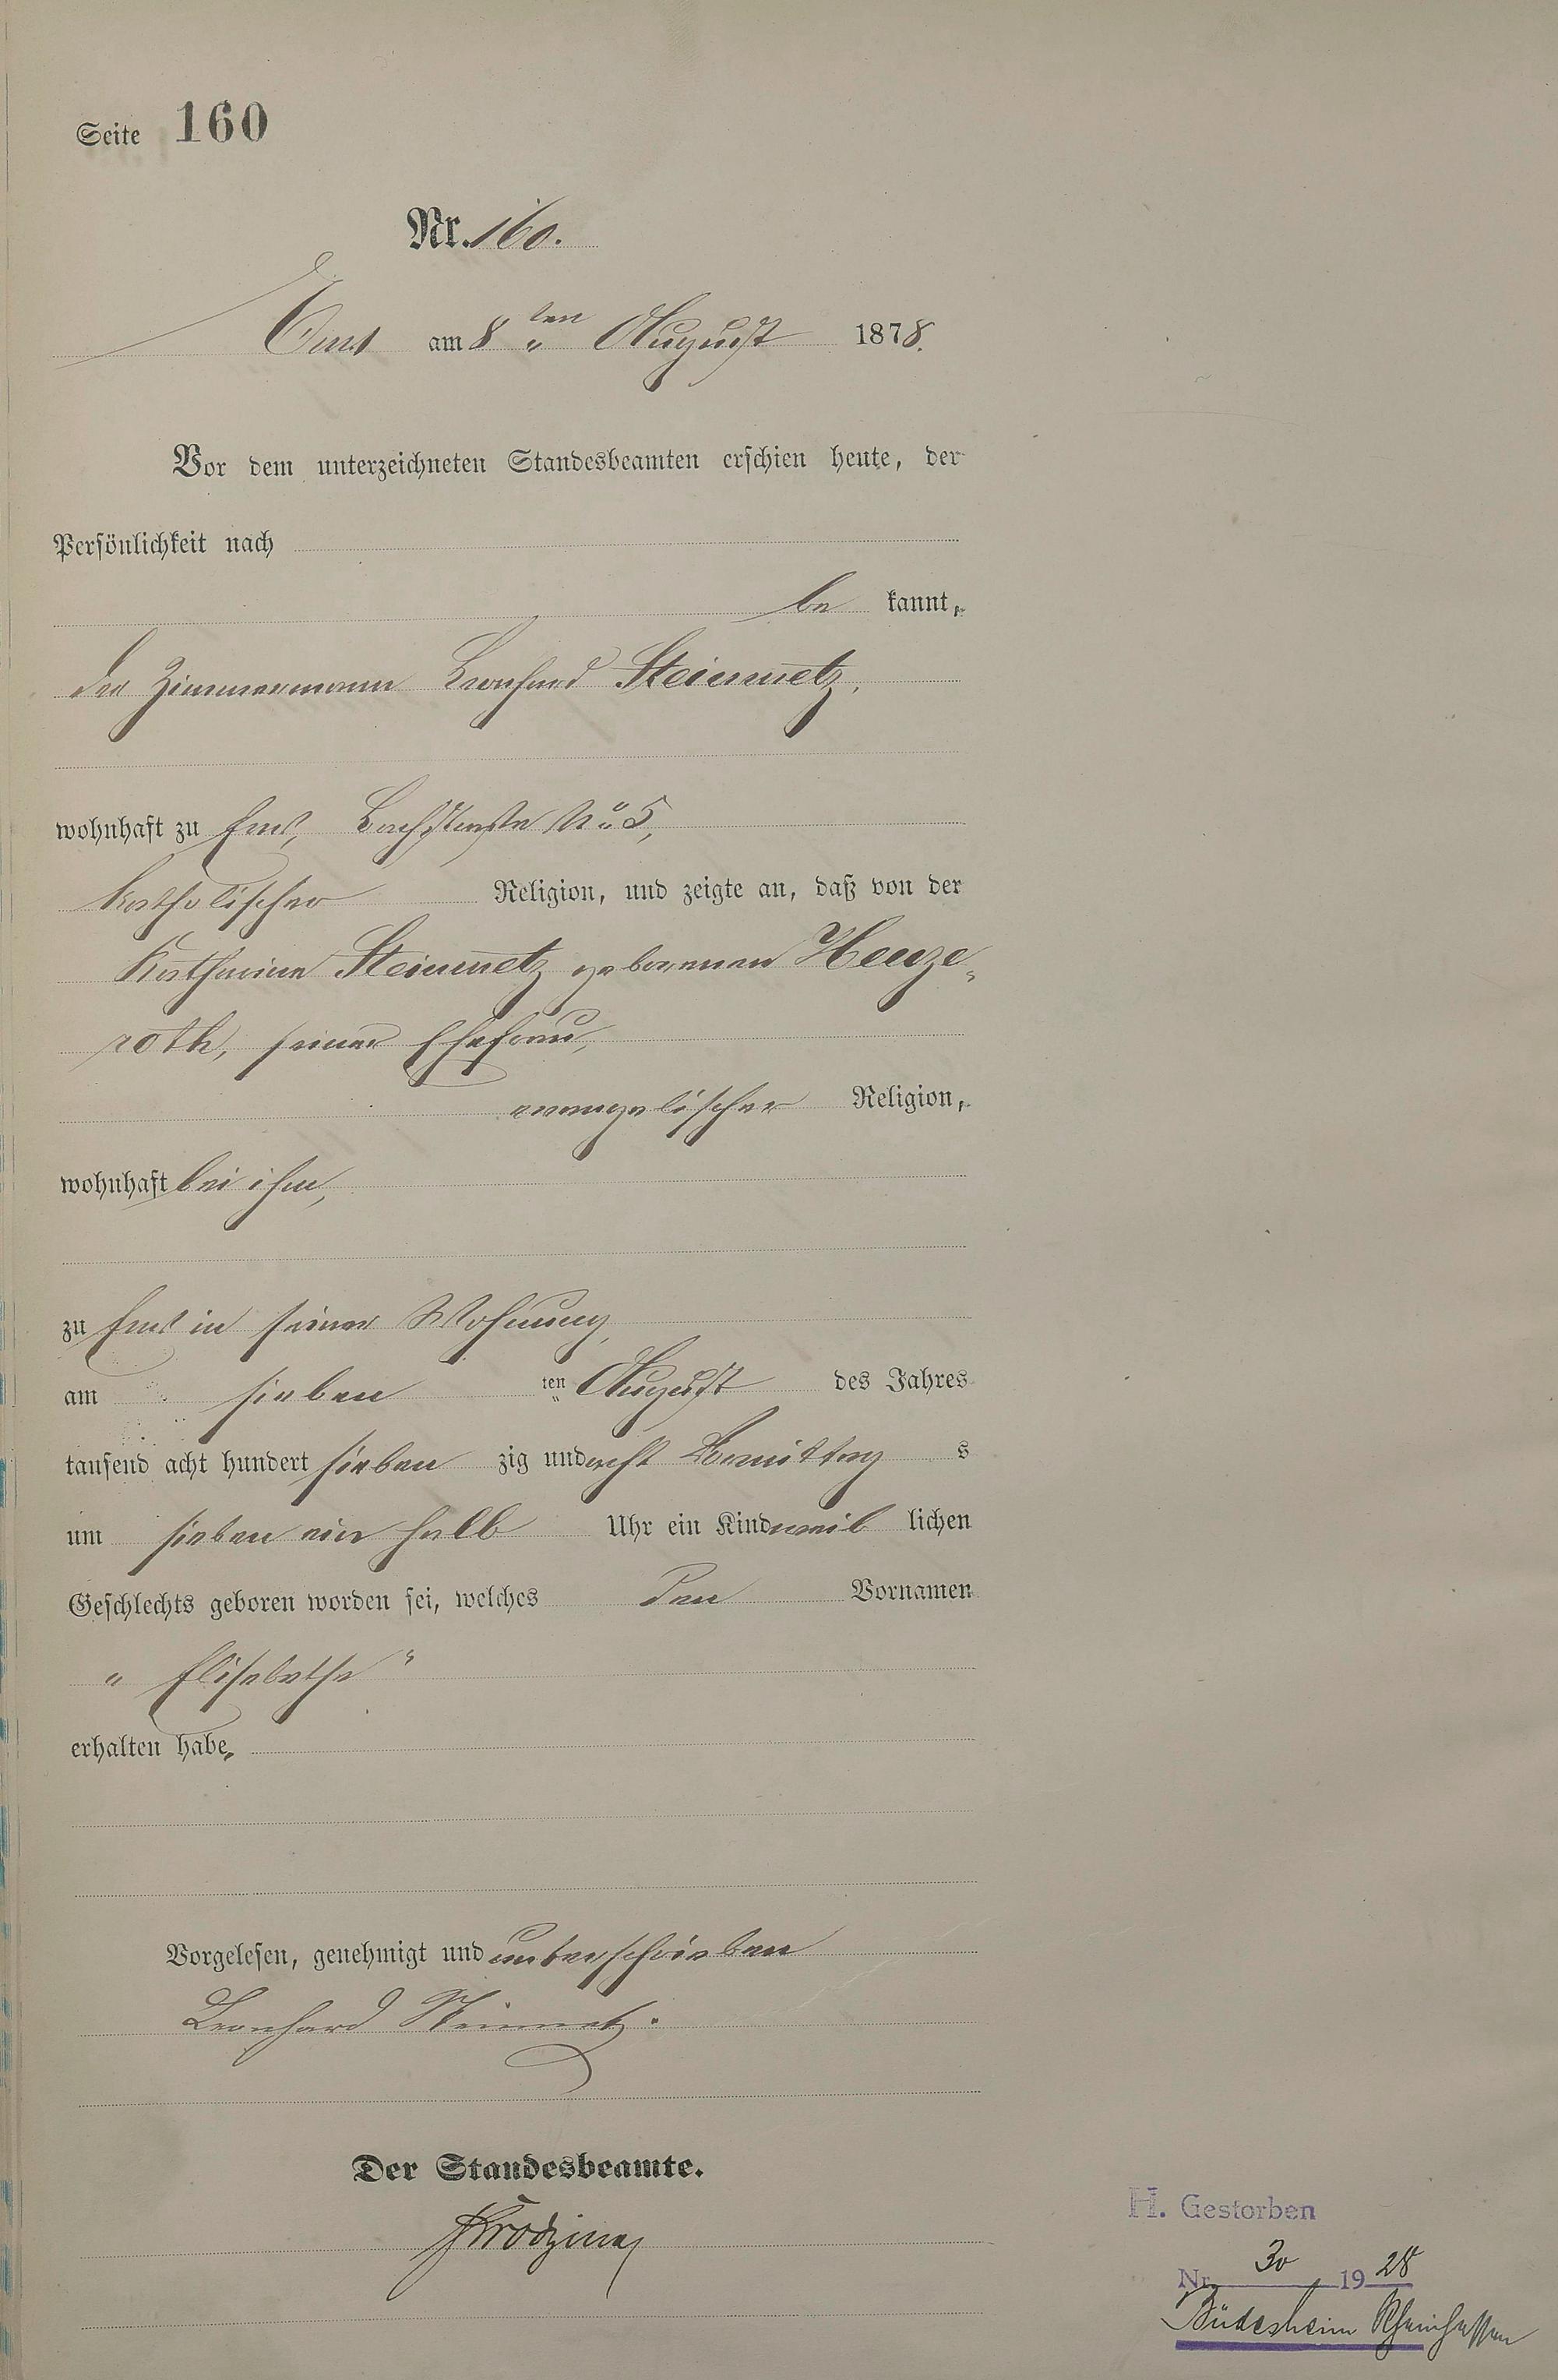 Seite 160
Nr. 160.
Ems am 8ten August 1878.
Vor dem unterzeichneten Standesbeamten erschien heute, der
Persönlichkeit nach
be kannt,
der Zimmermann Leonhard Steinmetz,
wohnhaft zu Ems, Bachstraße No 5,
katholischer Religion, und zeigte an, daß von der
Katharina Steinmetz geborenen Henze-
roth, seiner Ehefrau,
evangelischer Religion,
wohnhaft bei ihm,
zu Ems in seiner Wohnung,
am sieben ten August des Jahres
tausend acht hundert sieben zig und acht Vormittag s
um sieben ein halb Uhr ein Kind weib lichen
Geschlechts geboren worden sei, welches den Vornamen
"Elisabetha"
erhalten habe,
Vorgelesen, genehmigt und unterschrieben
Leonhard Steinmetz.
Der Standesbeamte.
H. Gestorben
Nr. 30 1928
Büdesheim Rheinhessen